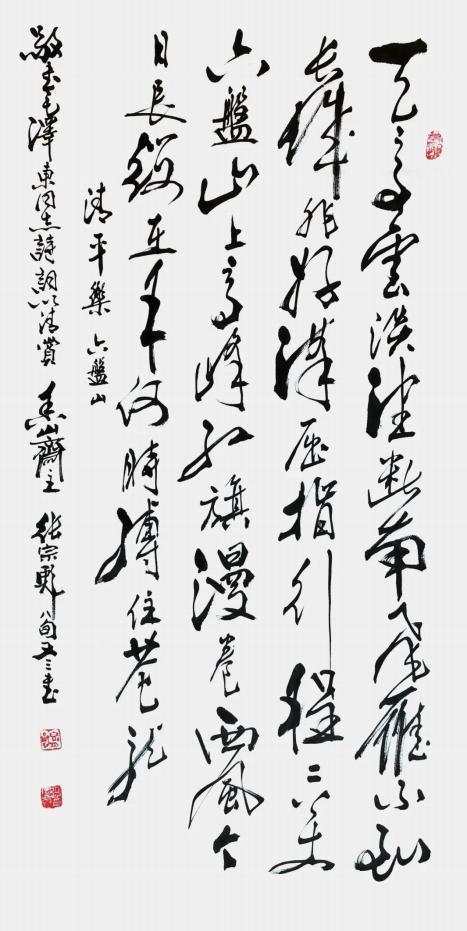 天高雲淡望斷南飛雁不到
长城非好漢屈指行程二万
六盤山上高峰红旗漫卷西風今
日長缨在手何時縛住苍龙
清平樂 六盤山
敬书毛澤東同志詩詞以清賞 山齋主 张宗 八旬又三书